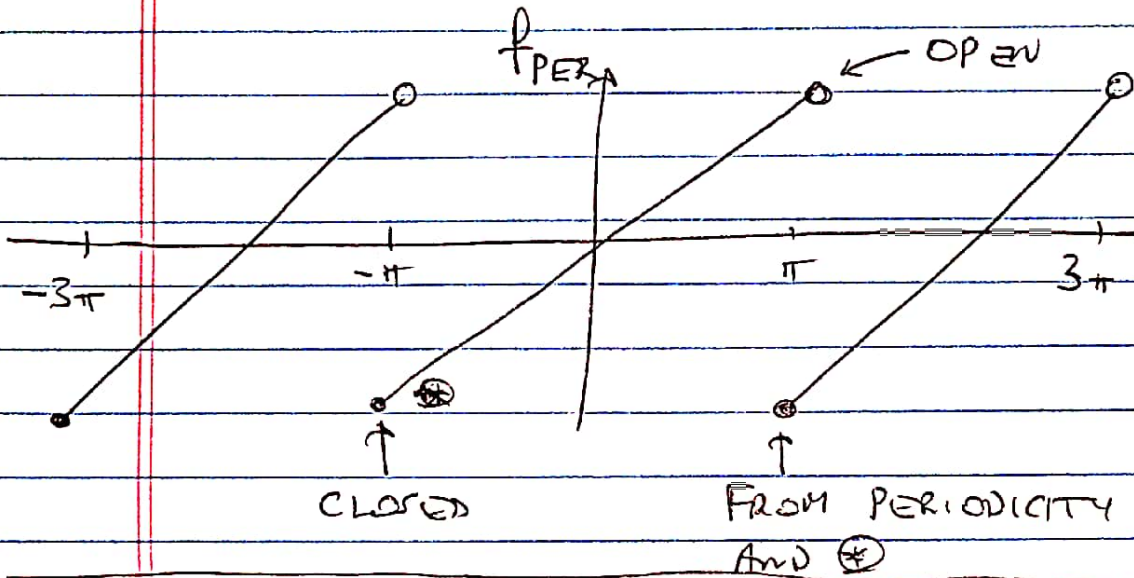 f_PER
OPEN
-3π
-π
π
3π
CLOSED
FROM PERIODICITY
AND ⊛
⊛